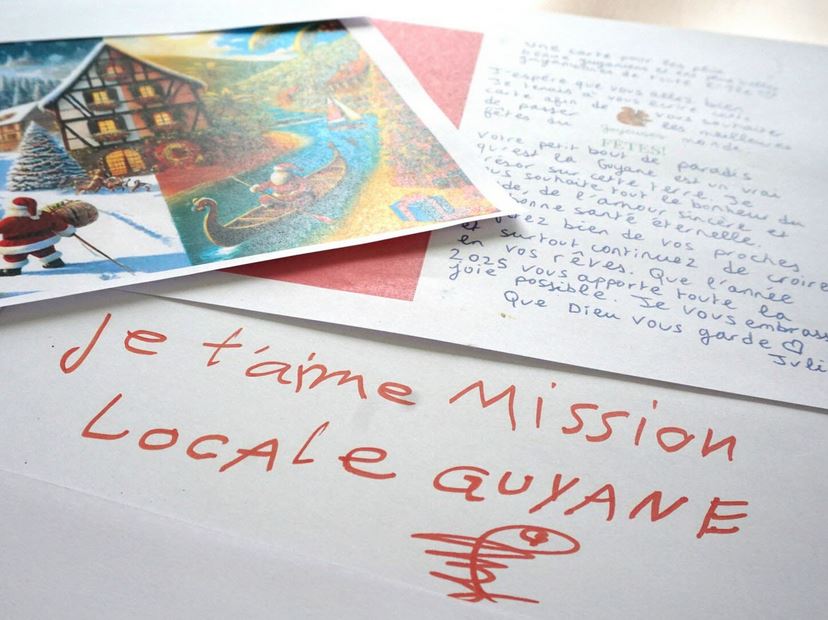 une carte pour les plus
J'espère que vous allez bien
Je tenais à vous écrire cette
carte afin de vous souhaiter
de passer les meilleures
fêtes du monde.
Joyeuses
FÊTES!
Votre petit bout de paradis
qu'est la Guyane est un vrai
trésor sur cette terre. Je
vous souhaite tout le bonheur du
de, de l'amour sincère et
bonne santé éternelle.
bien de vos proches
et surtout continuez de croire
en vos rêves. Que l'année
2025 vous apporte toute la
joie possible. Je vous embrass
Que Dieu vous garde
Juli
Je t'aime Mission
LOCALE GUYANE